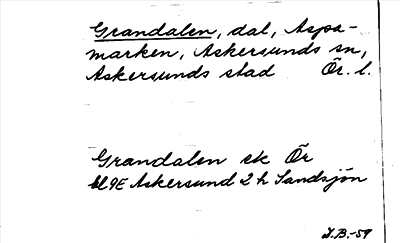 Grandalen, dal, Aspa-
marken, Askersunds sn,
Askersunds stad Ör. l.
Grandalen ek Ör
bl 9E Askersund 2 h Sandsjön
I.B.-59